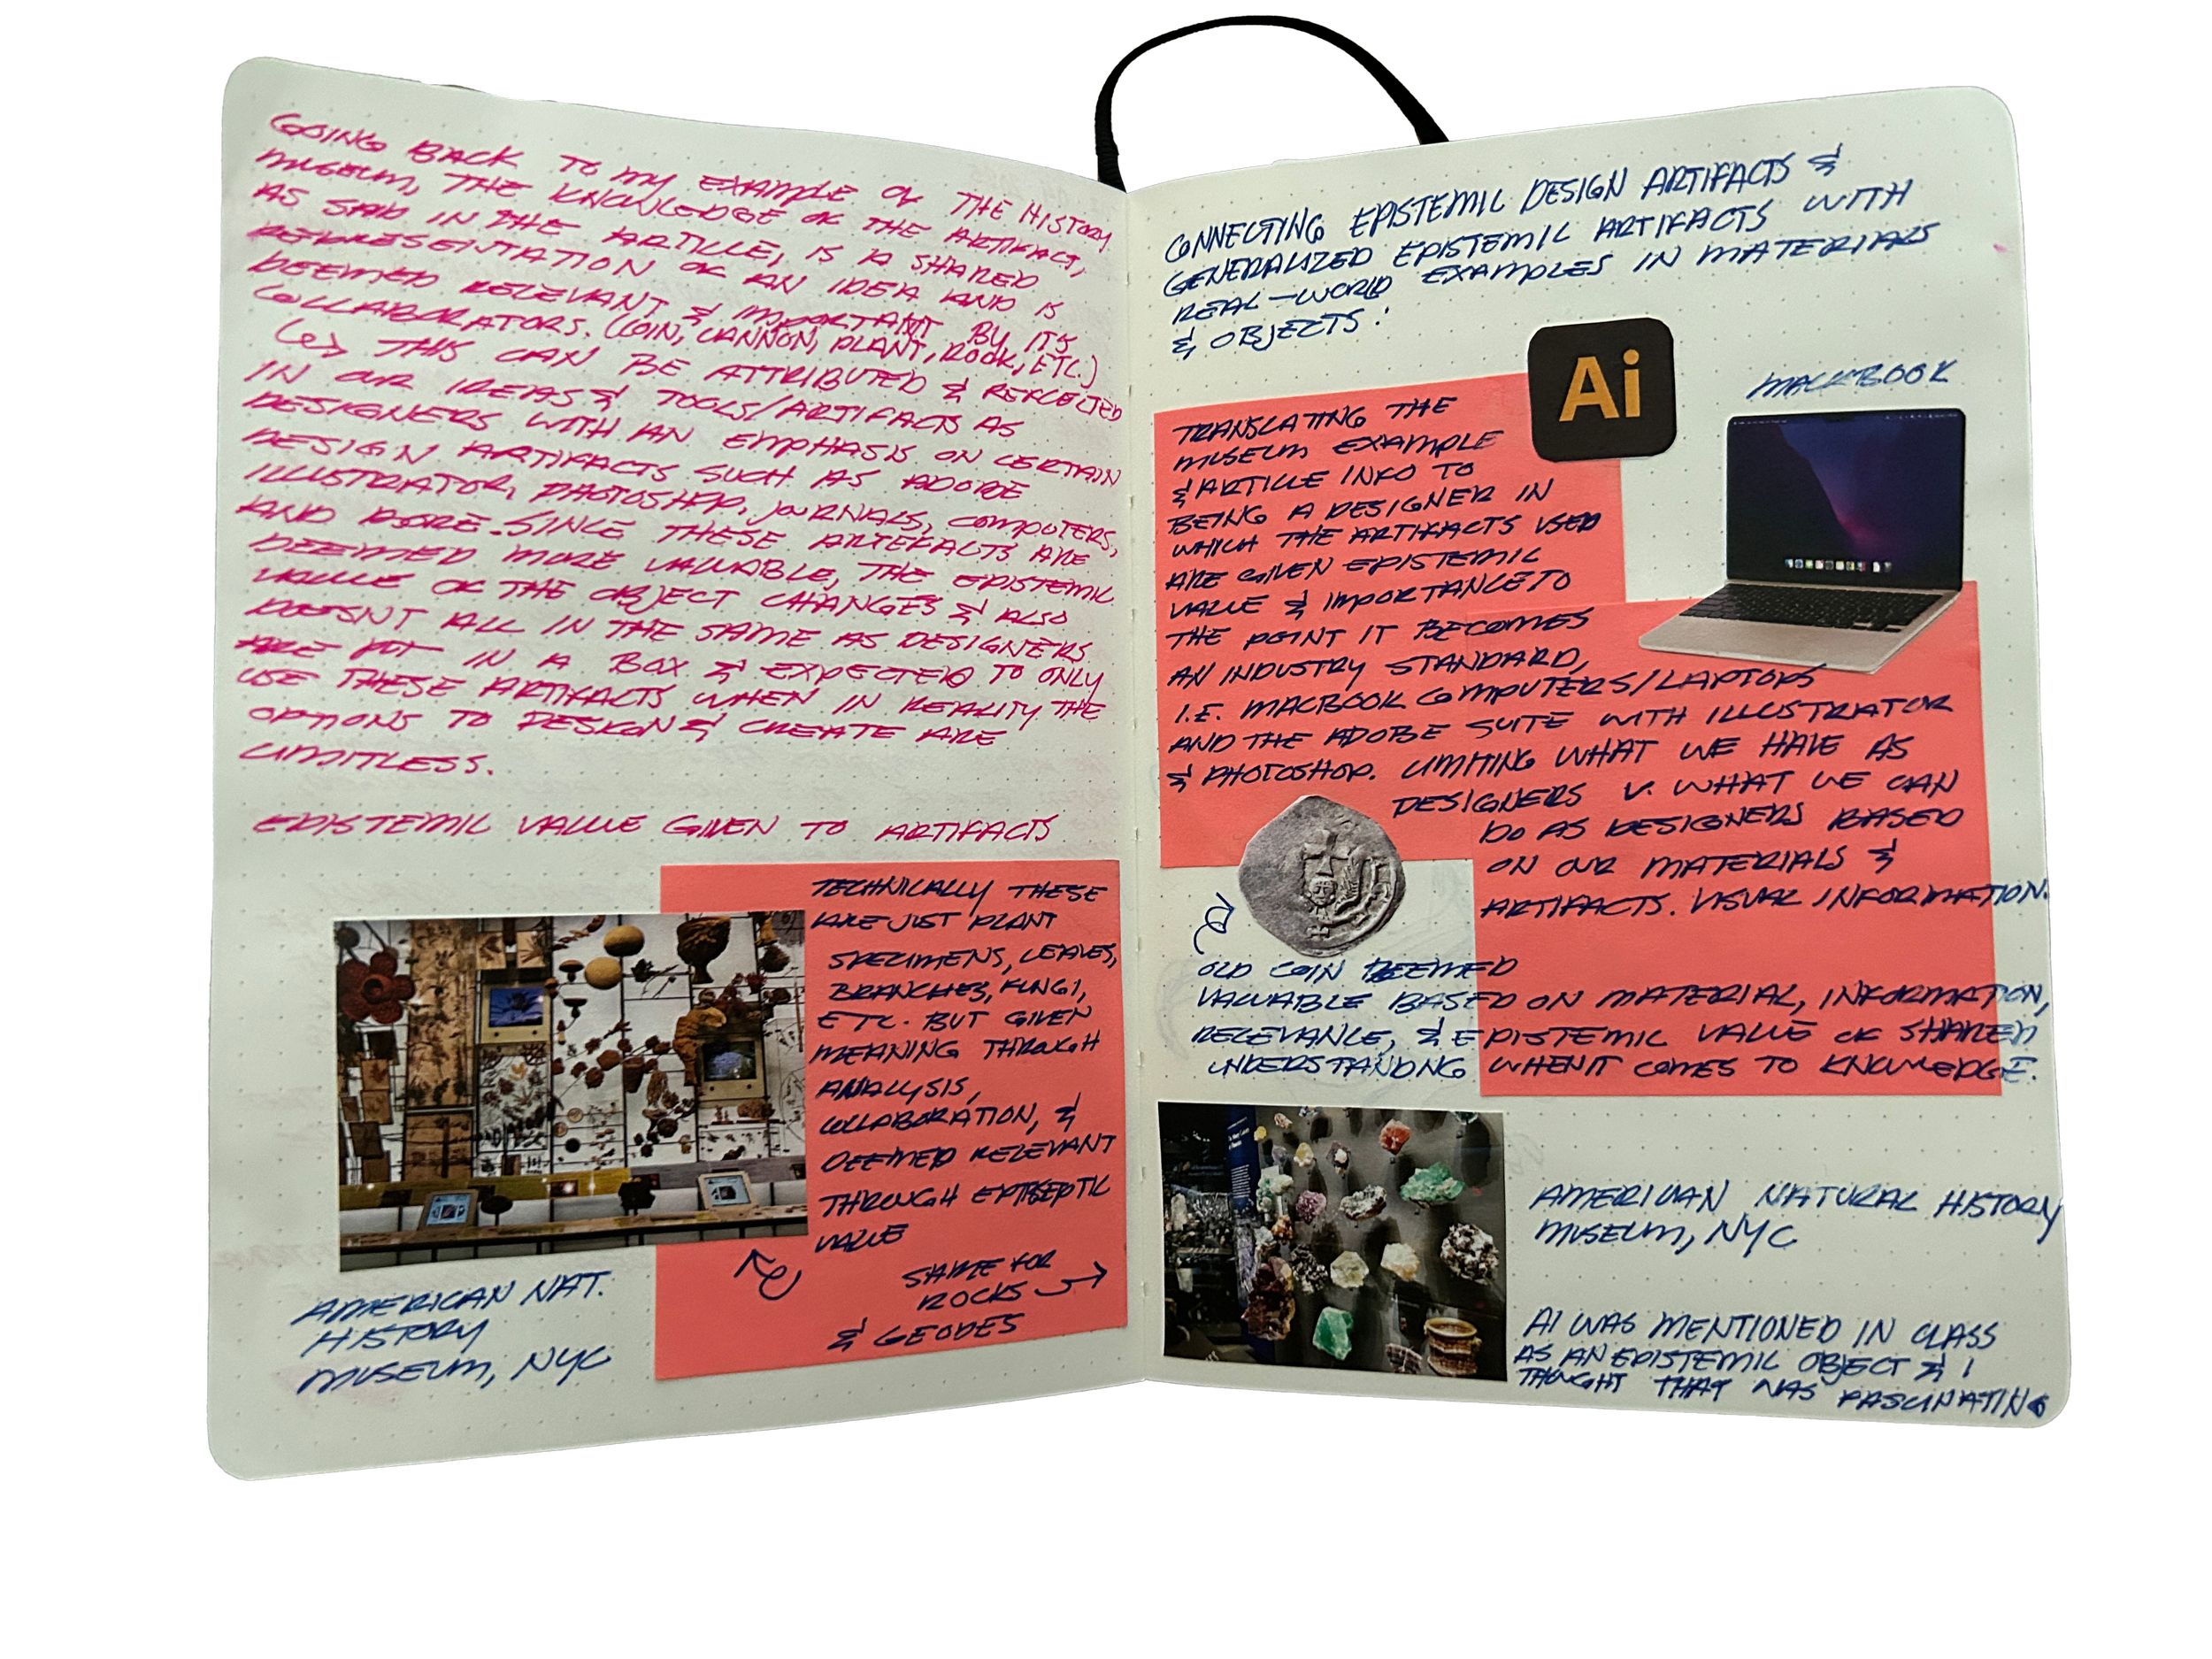 GOING BACK TO MY EXAMPLE OF THE HISTORY
MUSEUM, THE KNOWLEDGE OF THE ARTIFACT,
AS SAID IN THE ARTICLE, IS A SHARED
REPRESENTATION OF AN IDEA AND IS
DEEMED RELEVANT & IMPORTANT BY ITS
COLLABORATORS. (COIN, CANNON, PLANT, ROCK, ETC.)
THIS CAN BE ATTRIBUTED & REFLECTED
IN OUR IDEAS & TOOLS/ARTIFACTS AS
DESIGNERS WITH AN EMPHASIS ON CERTAIN
DESIGN ARTIFACTS SUCH AS ADOBE
ILLUSTRATOR, PHOTOSHOP, JOURNALS, COMPUTERS,
AND MORE. SINCE THESE ARTEFACTS ARE
DEEMED MORE VALUABLE, THE EPISTEMIC
VALUE OF THE OBJECT CHANGES & ALSO
DOESNT ALL IN THE SAME AS DESIGNERS
ARE PUT IN A BOX & EXPECTED TO ONLY
USE THESE ARTIFACTS WHEN IN REALITY THE
OPTIONS TO DESIGN & CREATE ARE
LIMITLESS.
EPISTEMIC VALUE GIVEN TO ARTIFACTS
TECHNICALLY THESE
ARE JUST PLANT
SPECIMENS, LEAVES,
BRANCHES, FUNGI,
ETC. BUT GIVEN
MEANING THROUGH
ANALYSIS,
COLLABORATION, &
DEEMED RELEVANT
THROUGH
VALUE
SAME FOR
ROCKS
& GEODES
AMERICAN NAT.
HISTORY
MUSEUM, NYC
CONNECTING EPISTEMIC DESIGN ARTIFACTS &
GENERALIZED EPISTEMIC ARTIFACTS WITH
REAL-WORLD EXAMPLES IN MATERIALS
& OBJECTS:
Ai
MACKBOOK
TRANSLATING THE
MUSEUM EXAMPLE
& ARTICLE INFO TO
BEING A DESIGNER IN
WHICH THE ARTIFACTS USED
ARE GIVEN EPISTEMIC
VALUE & IMPORTANCE TO
THE POINT IT BECOMES
AN INDUSTRY STANDARD,
I.E. MACBOOK COMPUTERS/LAPTOPS
AND THE ADOBE SUITE WITH ILLUSTRATOR
& PHOTOSHOP. LIMITING WHAT WE HAVE AS
DESIGNERS V. WHAT WE CAN
DO AS DESIGNERS BASED
ON OUR MATERIALS &
ARTIFACTS. VISUAL INFORMATION.
OLD COIN DEEMED
VALUABLE BASED ON MATERIAL, INFORMATION,
RELEVANCE, & EPISTEMIC VALUE OF SHARED
UNDERSTANDING WHEN IT COMES TO KNOWLEDGE.
AMERICAN NATURAL HISTORY
MUSEUM, NYC
AI WAS MENTIONED IN CLASS
AS AN EPISTEMIC OBJECT & I
THOUGHT THAT WAS FASCINATING